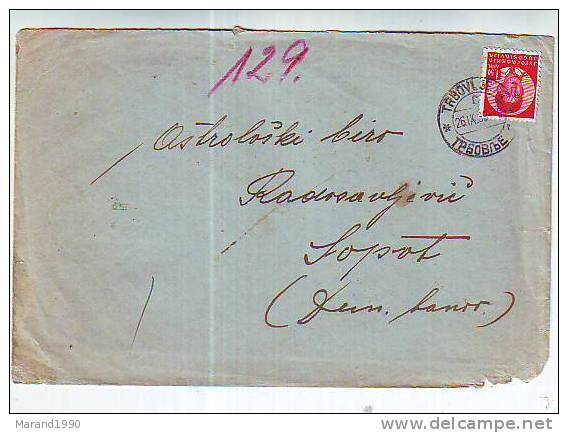 129.
JУГОСЛАВИЈА
JUGOSLAVIJA
TRBOVLJE
26.IX.3
ТРБОВЉЕ
Astrološki biro
Radosavljević
Sopot
(Dun. banov.)
Marand1990
delcampe.net